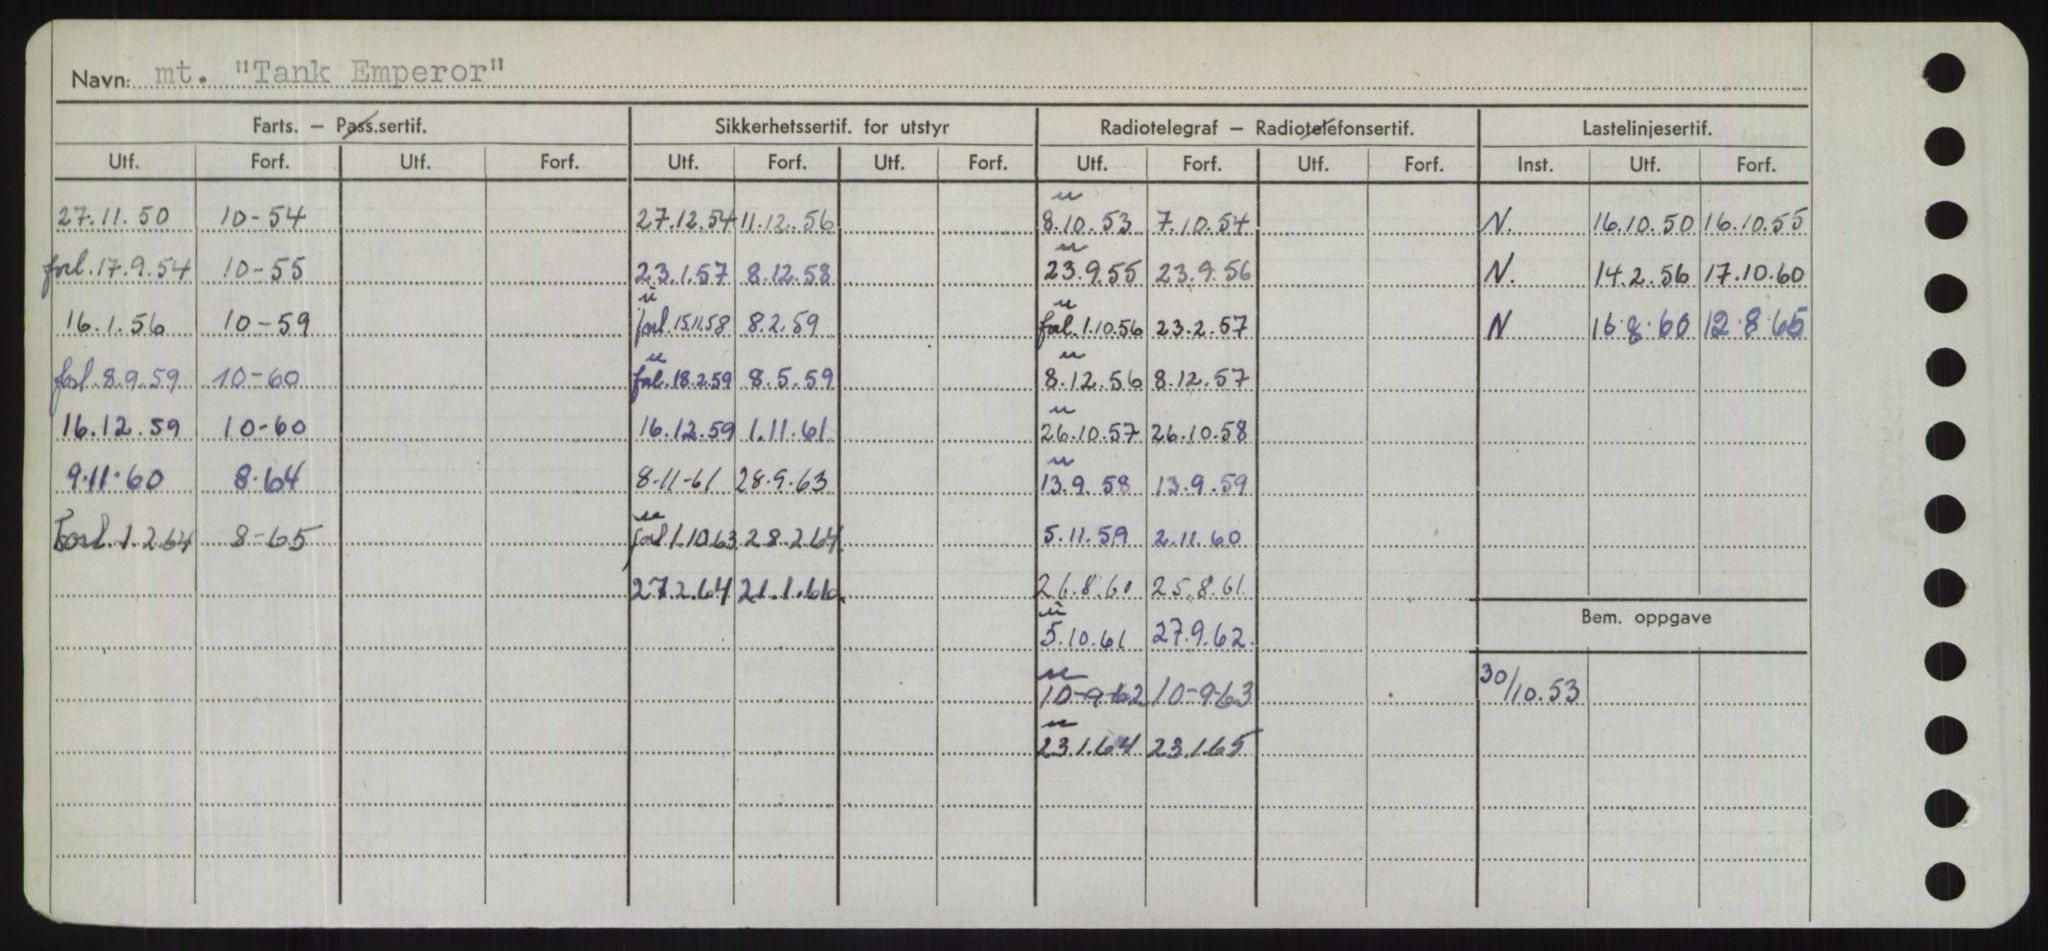 Navn: mt. "Tank Emperor"
Farts. — Pass.sertif. Sikkerhetssertif. for utstyr Radiotelegraf — Radiotelefonsertif. Lastelinjesertif.
Utf. Forf. Utf. Forf. Utf. Forf. Utf. Forf. Utf. Forf. Utf. Forf. Inst. Utf. Forf.
u
27.11.50 10-54 27.12.54 11.12.56 8.10.53 7.10.54 N. 16.10.50 16.10.55
u
forl. 17.9.54 10-55 23.1.57 8.12.58 23.9.55 23.9.56 N. 14.2.56 17.10.60
u u
16.1.56 10-59 forl. 15.11.58 8.2.59 forl. 1.10.56 23.2.57 N 16.8.60 12.8.65
u u
forl. 8.9.59 10-60 forl. 18.2.59 8.5.59 8.12.56 8.12.57
u
16.12.59 10-60 16.12.59 1.11.61 26.10.57 26.10.58
u
9.11.60 8.64 8-11-61 28.9.63 13.9.58 13.9.59
u
Forl. 1.2.64 8-65 forl 1.10.63 28.2.64. 5.11.59 2.11.60
27.2.64 21.1.66. 26.8.60 25.8.61
Bem. oppgave
u
5.10.61 27.9.62.
u
10-9-62 10-9-63 30/10.53
u
23.1.64 23.1.65